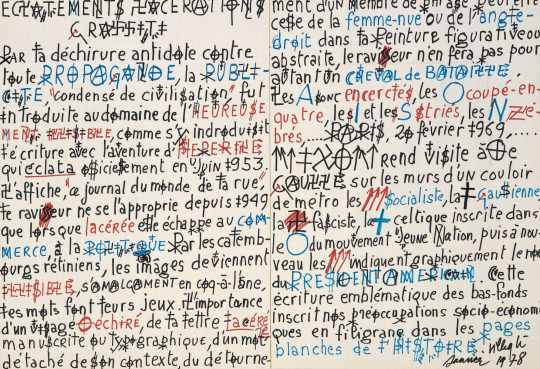 ECLATEMENTS LACERATIONS
CRYPTIT
PAR la déchirure antidote contre
toute PROPAGANDE, la PUBLI-
CITE, "condensé de civilisation", fut
introduite au domaine de l'HEUREUSE
MENT ILLISIBLE, comme s'y introduisit
l'écriture avec l'aventure d'HEPERILE
qui éclata officiellement en juin 1953.
L'affiche, "ce journal du monde de la rue",
le raviseur ne se l'approprie depuis 1949
que lorsque lacérée elle échappe au COM-
MERCE, à la POLITIQUE. Par les calemb-
ours rétiniens, les images deviennent
PLAUSIBLE, s'AMALGAMENT en coq-à-l'âne,
les mots font leurs jeux. L'importance
d'un visage déchiré, de la lettre lacéré
manuscrite ou typographique, d'un mot
détaché de son contexte, du détourne-
ment d'un membre de phrase peut être
celle de la femme-nue ou de l'angle-
droit dans la peinture figurative ou
abstraite, le raviseur n'en fera pas pour
autant un CHEVAL DE BATAILLE.
Les A sont encerclés, les O coupé-en-
quatre, les I et les S striés, les N zé-
brés..... PARIS, 28 février 1969.....
rend visite à De
GAULLE sur les murs d'un couloir
de métro les socialiste, la Gaullienne,
fasciste, la celtique inscrite dans
le O du mouvement "Jeune Nation, puis à nou-
veau les indiquent graphiquement le nom
du PRESIDENT AMERICAIN. Cette
écriture emblématique des bas-fonds
inscrit nos préoccupations socio-économi
ques en filigrane dans les pages
blanches de l'HISTOIRE.
janvier 1978